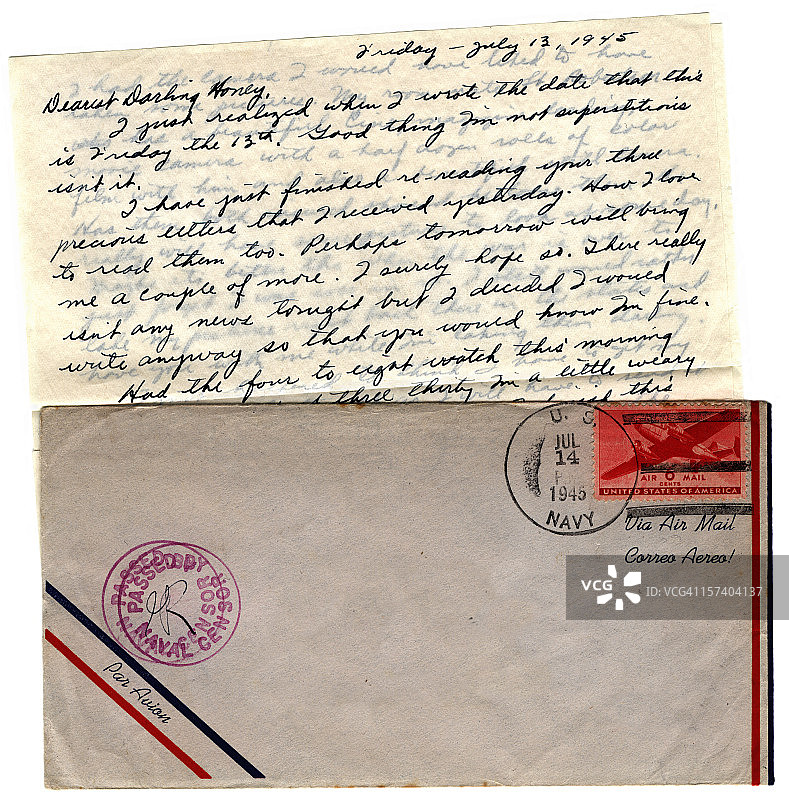 Friday - July 13, 1945
Dearest Darling Honey,
I just realized when I wrote the date that this
is Friday the 13th. Good thing I'm not superstitious
isn't it.
I have just finished re-reading your three
precious letters that I received yesterday. How I love
to read them too. Perhaps tomorrow will bring
me a couple of more. I surely hope so. There really
isn't any news tonight but I decided I would
write anyway so that you would know I'm fine.
Had the four to eight watch this morning
three thirty I'm a little weary
this
U. S.
JUL
14
1945
NAVY
AIR 6 MAIL
CENTS
UNITED STATES OF AMERICA
Via Air Mail
Correo Aereo!
VCG
ID: VCG41157404137
PASSED BY
NAVAL CENSOR
Par Avion